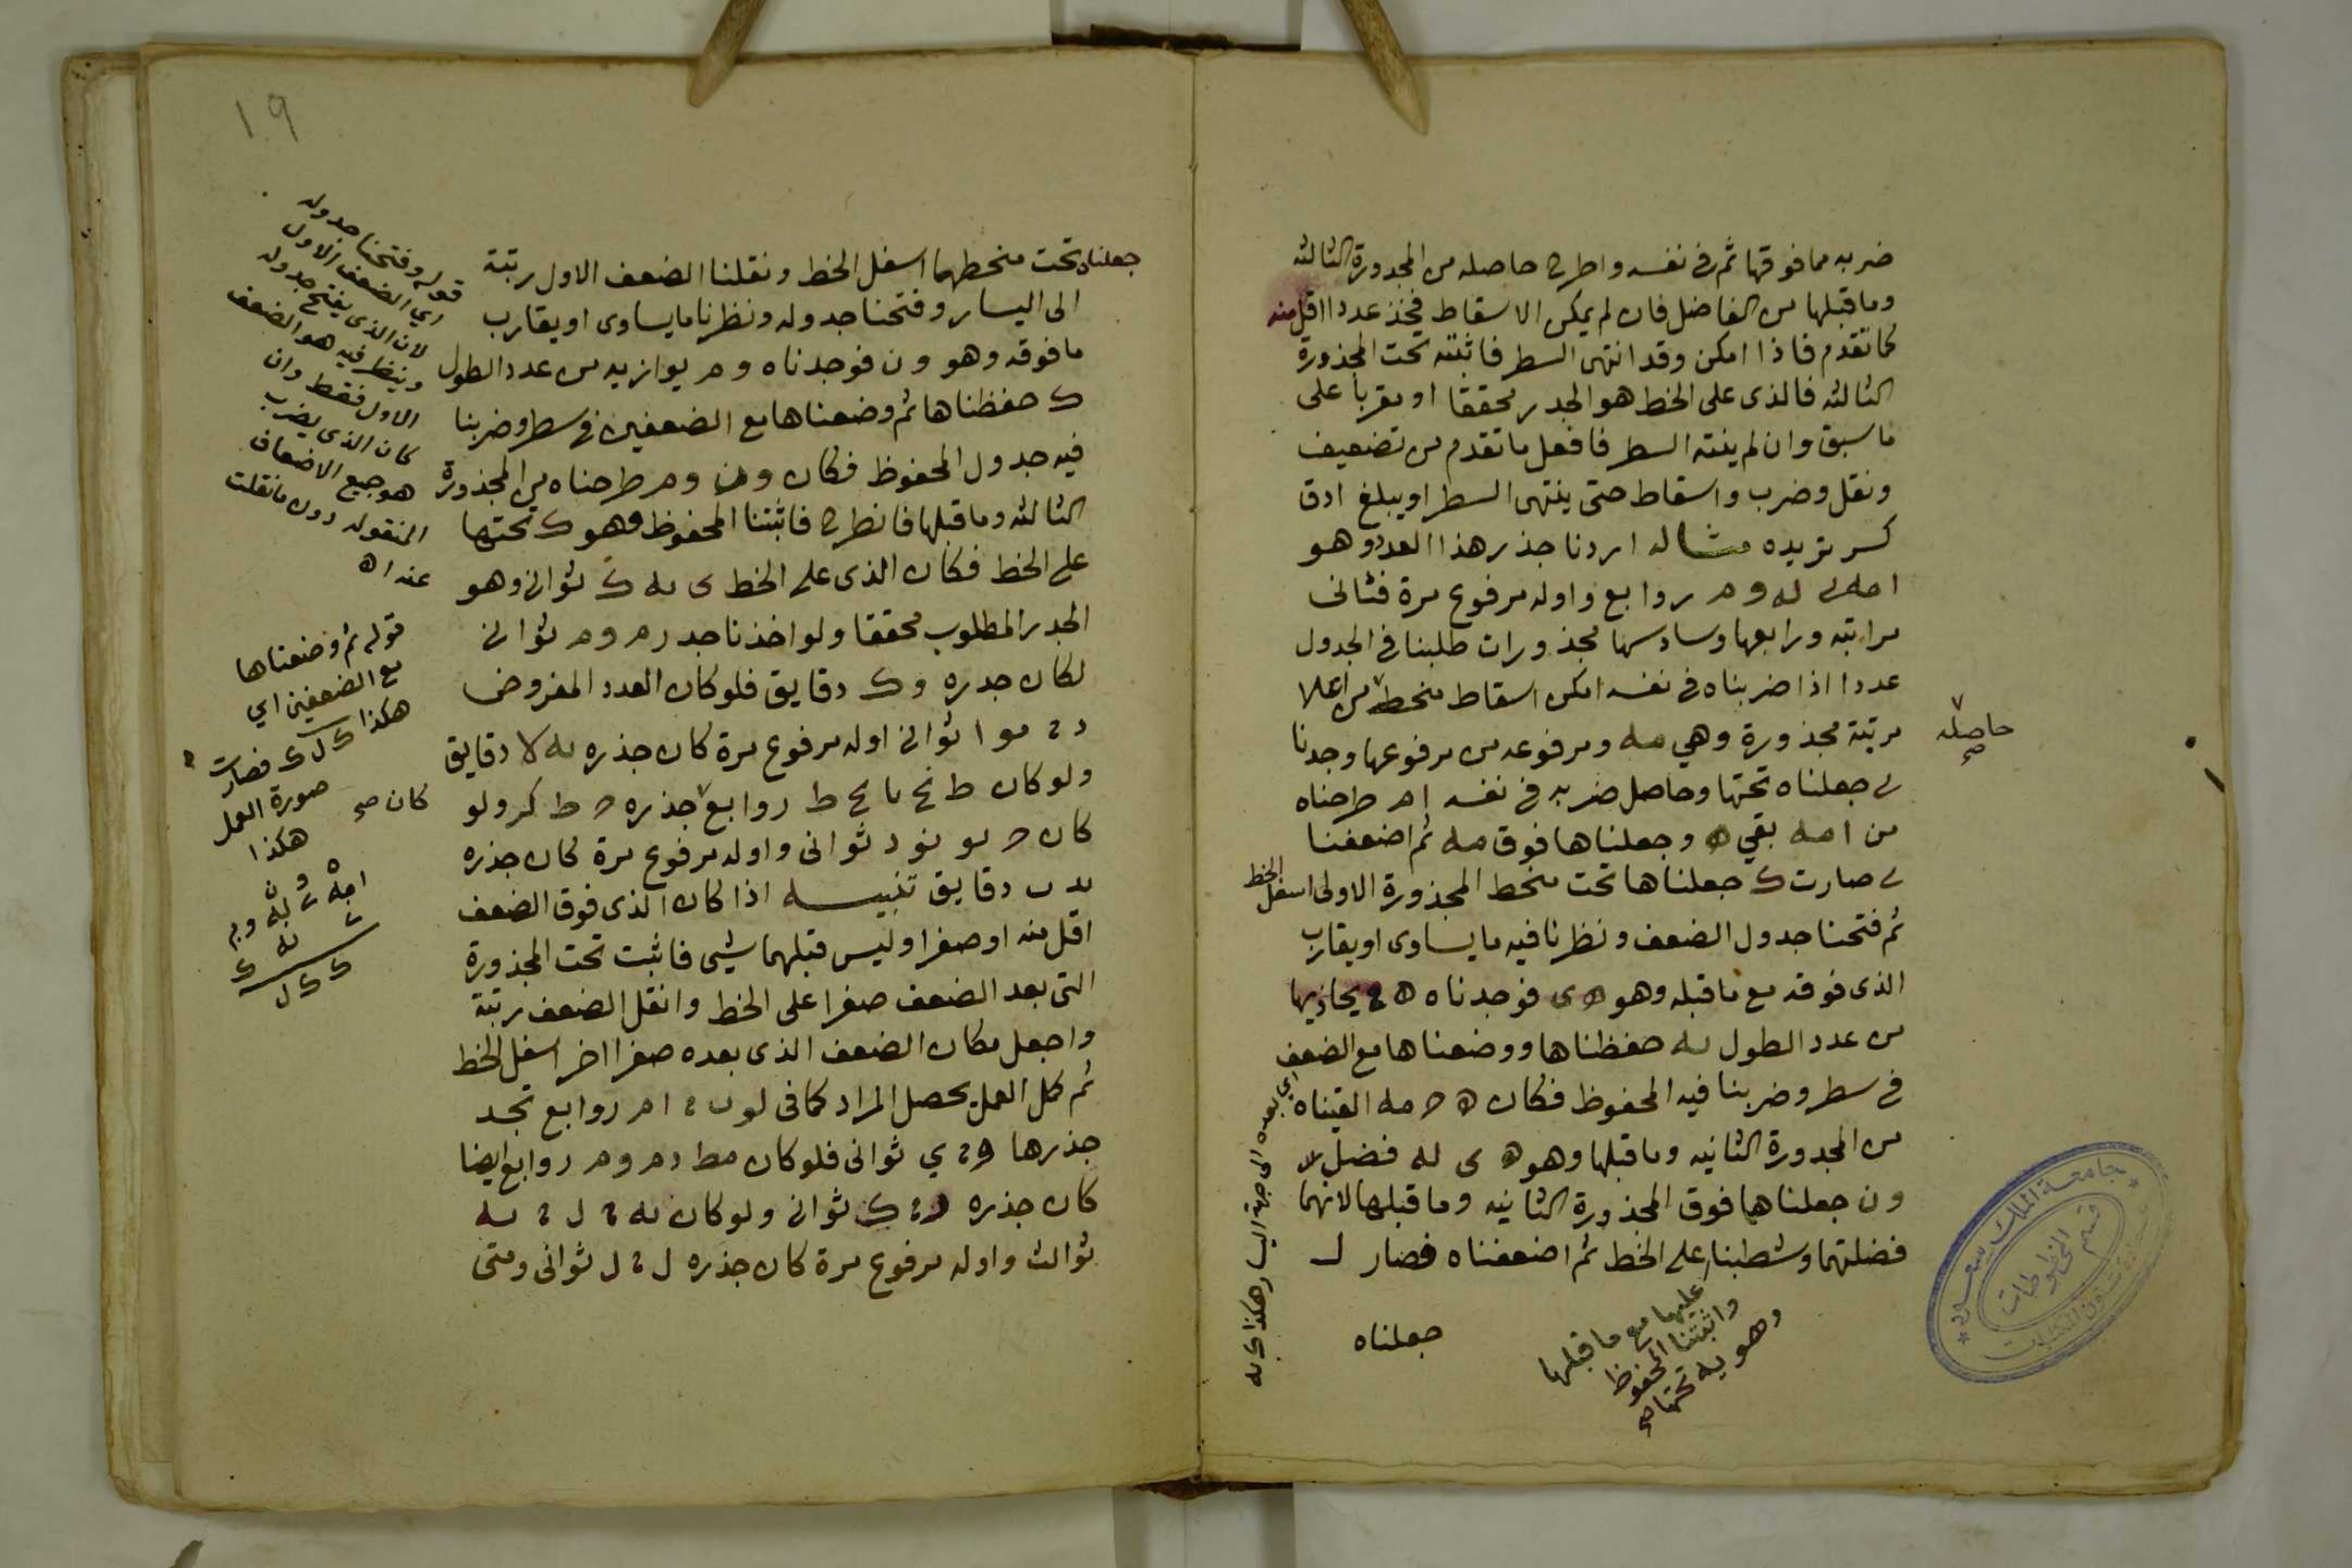 ضربه مما فوقها ثم في نفسه واطرح حاصله من المجذورة الثالثه
وما قبلها من الفاضل فان لم يمكن الاسقاط فخذ عددا اقل منه
كما تقدم فاذا امكن وقد انتهى السطر فاثبته تحت المجذورة
الثالثه فالذى على الخط هو الجدر محققا او مقربا على
ما سبق وان لم ينته السطر فافعل ما تقدم من تضعيف
ونقل وضرب واسقاط حتى ينتهى السطر او يبلغ ادق
كسر تريده مثاله اردنا جذر هذا العدد وهو
روابع واوله مرفوع مرة فثانى
مراتبه ورابعها وسادسها مجذورات طلبنا فى الجدول
عددا اذا ضربناه فى نفسه امكن اسقاط منحطه من اعلا
حاصله صح
مرتبة مجذورة وهي مه ومرفوعه من مرفوعها وجدنا
ى جعلناه تحتها وحاصل ضربه فى نفسه ام طرحناه
من امه بقي ه وجعلناها فوق مه ثم اضعفنا
ى صارت ك جعلناها تحت منحط المجذورة الاولى اسفل الخط
ثم فتحنا جدول الضعف ونظرنا فيه ما يساوى او يقارب
الذى فوقه مع ما قبله وهو ه ى فوجدناه ه يحاذيها
من عدد الطول يه حفظناها ووضعناها مع الضعف
فى سطر وضربنا فيه المحفوظ فكان ه ح مه القيناه
من المجدورة الثانيه وما قبلها وهو ه ى له فضل لا
ون جعلناها فوق المجذورة الثانيه وما قبلها لانهما
فضلتهما وشطبنا على الخط ثم اضعفناه فصار ل
عليها مع ما قبلها
واثبتنا المحفوظ
وهو يه تحتها صح
جعلناه
اي بعده الى جهة اليسار هكذا ك يه
جامعة الملك سعود
قسم المخطوطات
١٠٩
جعلناه تحت منحطهما اسفل الخط ونقلنا الضعف الاول رتبة
الى اليسار وفتحنا جدوله ونظرنا ما يساوى او يقارب
ما فوقه وهو ون فوجدناه وم يوازيه من عدد الطول
ك حفظناها ثم وضعناها مع الضعفين فى سطر وضربنا
فيه جدول المحفوظ فكان ون وم طرحناه من المجذورة
الثالثه وما قبلها فانطرح فاثبتنا المحفوظ وهو ك تحتها
على الخط فكان الذى على الخط ى يه ك ثوانى وهو
الجدر المطلوب محققا ولو اخذنا جدر م وم ثوانى
لكان جدره وك دقايق فلو كان العدد المفروض
ثوانى اوله مرفوع مرة كان جذره يه لا دقايق
ولو كان ط روابع جذره ح ط كر ولو
كان صح
كان ح يو نو د ثوانى واوله مرفوع مرة كان جذره
يد ب دقايق تنبيه اذا كان الذى فوق الضعف
اقل منه او صفرا وليس قبلهما شيى فاثبت تحت المجذورة
التى بعد الضعف صفرا على الخط وانقل الضعف رتبة
واجعل مكان الضعف الذى بعده صفرا اخر اسفل الخط
ثم كمل العمل يحصل المراد كما فى روابع تجد
جذرها ثوانى فلو كان مط وم روابع ايضا
كان جذره ثوانى ولو كان
ثوالث واوله مرفوع مرة كان جذره ثوانى ومتى
قوله وفتحنا جدوله
اي الضعف الاول
لان الذى يفتح جدوله
وينظر فيه هو الضعف
الاول فقط وان
كان الذى يضرب
هو جميع الاضعاف
المنقوله دون ما نقلت
عنه اه
قوله ثم وضعناها
مع الضعفين اي
هكذا ك ل ك فصارت
صورة العمل
هكذا